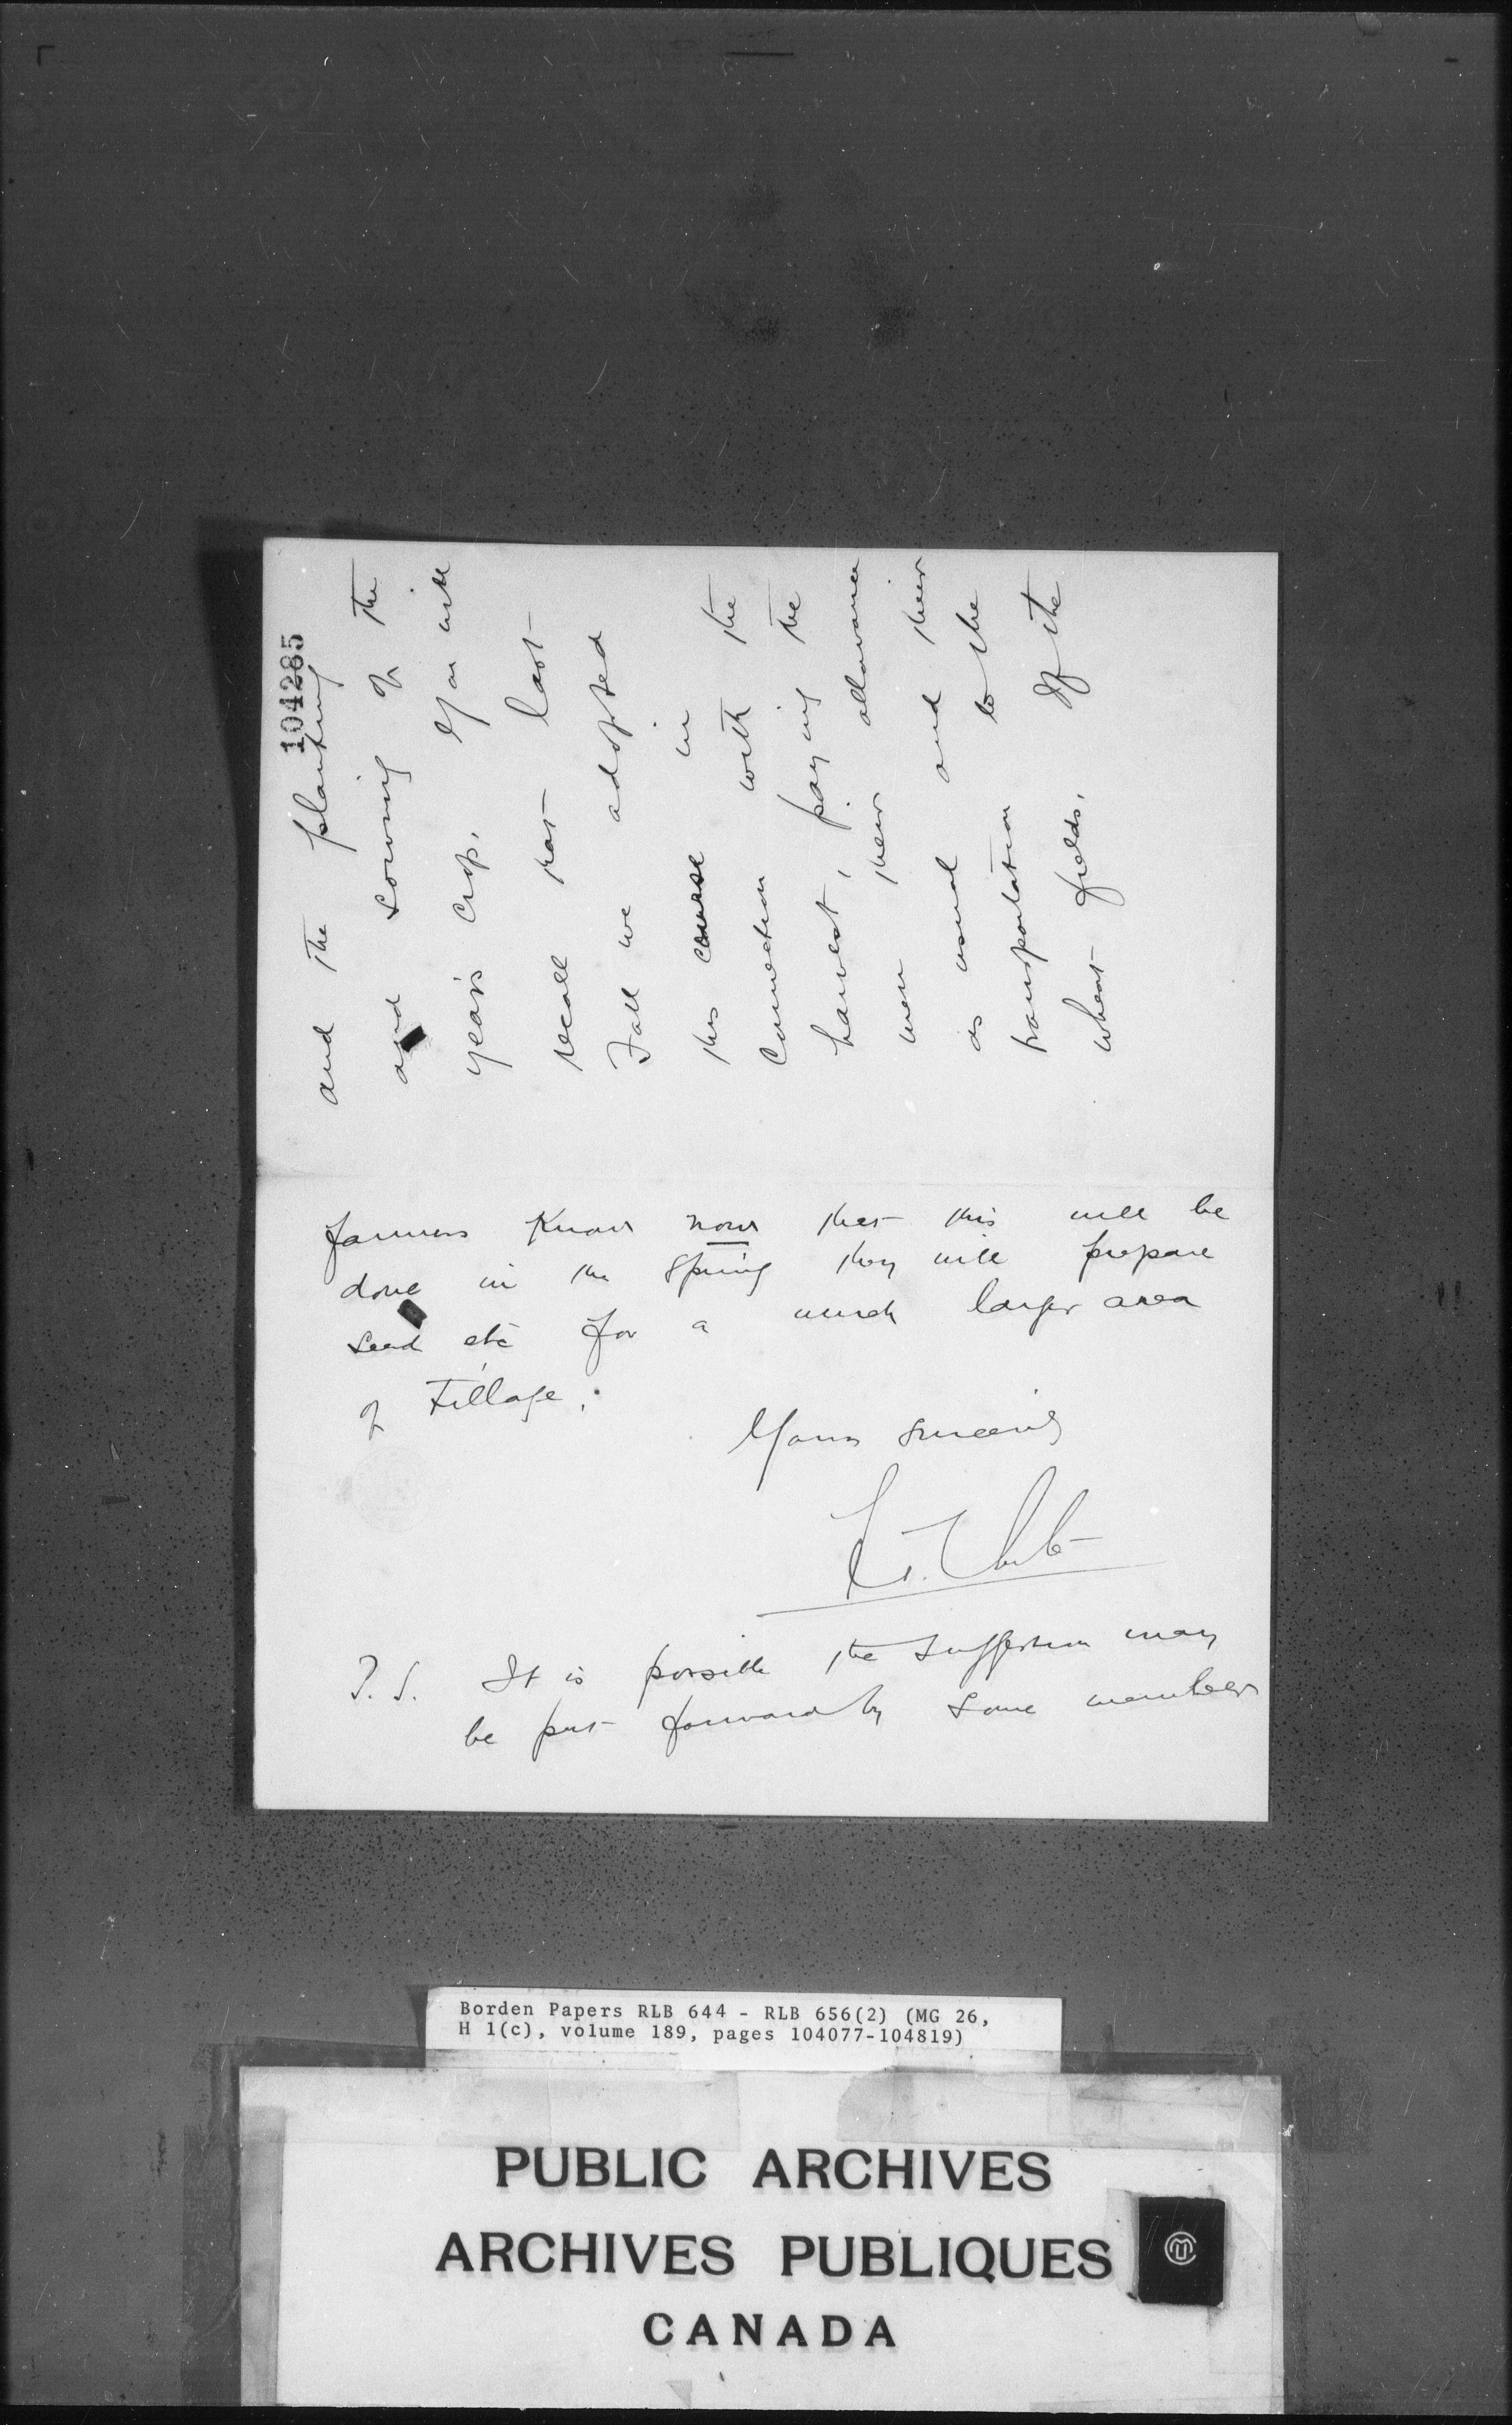 104285
and the planting
and sowing of the
year's crop. You will
recall that last
Fall we adopted
this course in
connection with the
harvest, paying the
men their allowance
as usual and their
transportation to the
wheat fields. If the
farmers know now that this will be
done in the Spring they will prepare
seed etc for a much larger area
of Tillage.
Yours sincerely
P.S. It is possible the suggestion may
be put forward by some members
Borden Papers RLB 644 - RLB 656(2) (MG 26,
H 1(c), volume 189, pages 104077-104819)
PUBLIC ARCHIVES
ARCHIVES PUBLIQUES
CANADA